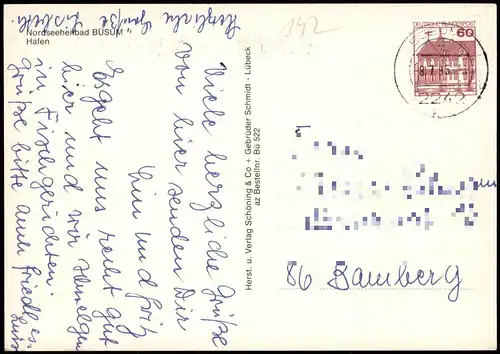 Herzliche Grüße Lisbeth
Nordseeheilbad BÜSUM
Hafen
192
DEUTSCHE BUNDESPOST
60
8.7.83
2242
Viele herzliche Grüße
von hier senden Dir
und Fritz
Es geht uns recht gut
hier und wir
in Fischgerichten.
Grüße bitte auch
Herst. u. Verlag Schöning & Co + Gebrüder Schmidt - Lübeck
az Bestellnr. Bü 522
86 Bamberg